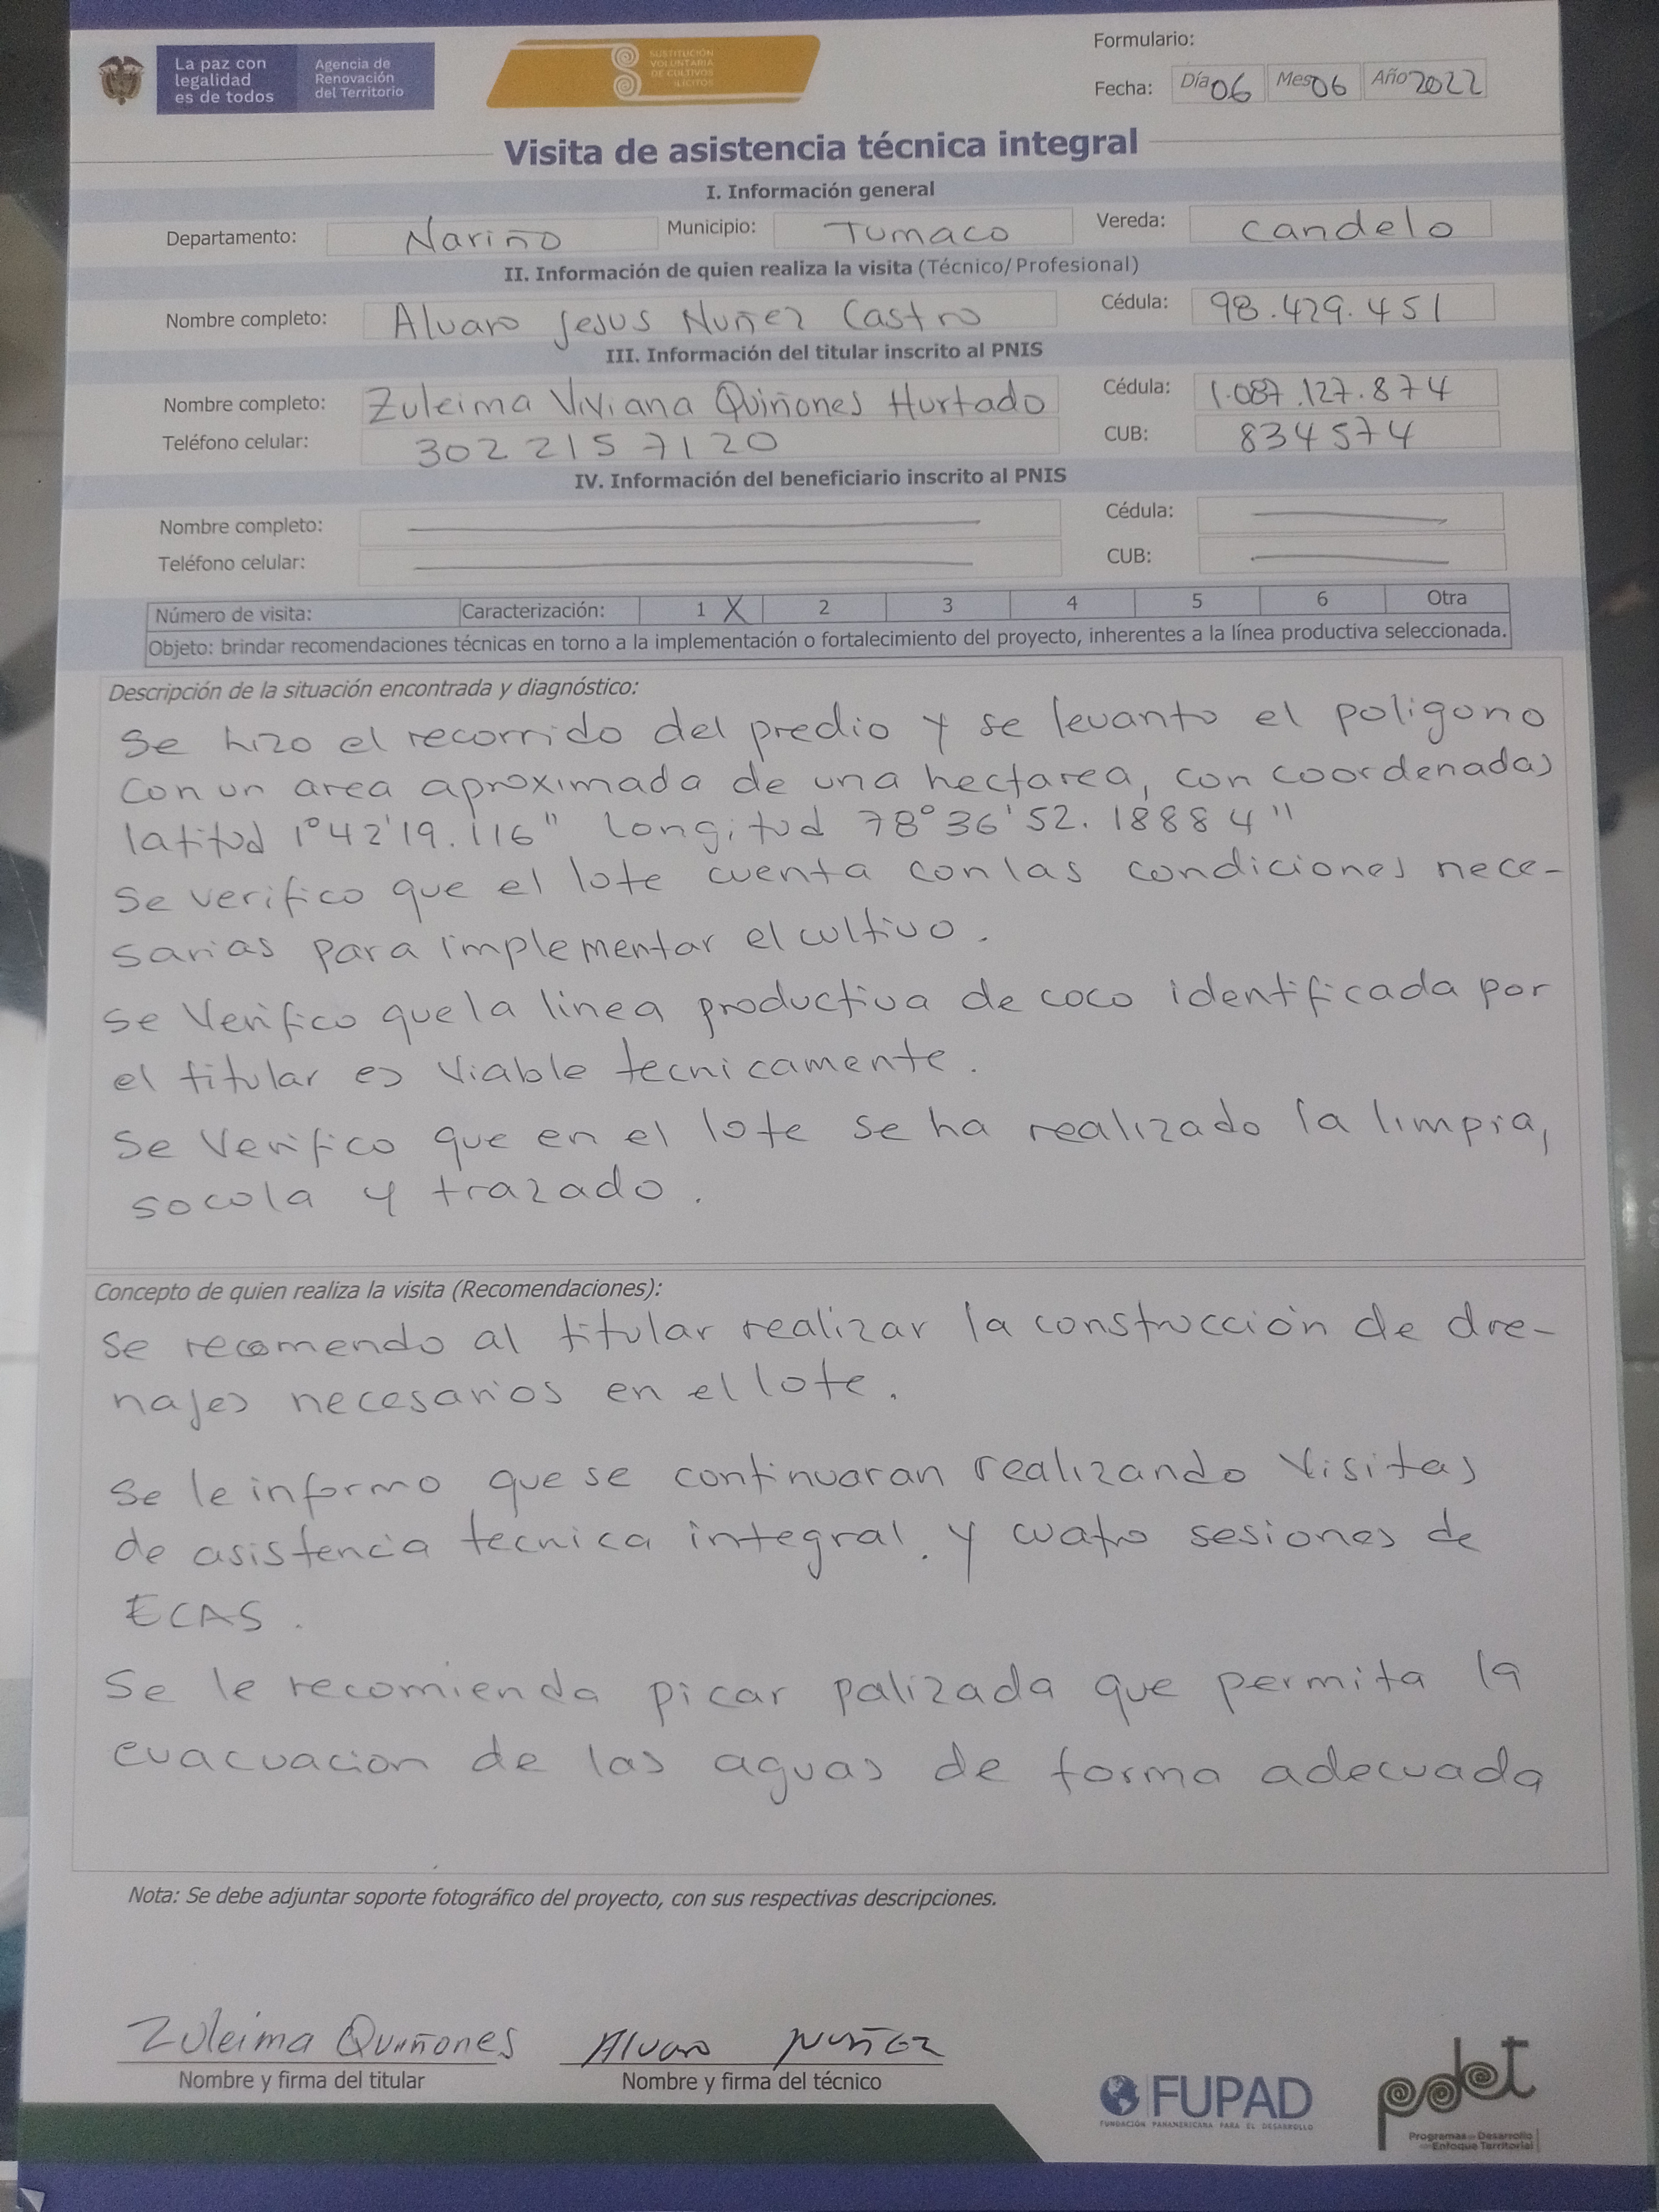 La paz con
legalidad
es de todos
Agencia de
Renovación
del Territorio
SUSTITUCIÓN
VOLUNTARIA
DE CULTIVOS
ILÍCITOS
Formulario:
Fecha: Día 06 Mes 06 Año 2022
Visita de asistencia técnica integral
I. Información general
Departamento: Nariño Municipio: Tumaco Vereda: Candelo
II. Información de quien realiza la visita (Técnico/Profesional)
Nombre completo: Alvaro Jesus Nuñez Castro Cédula: 98.429.451
III. Información del titular inscrito al PNIS
Nombre completo: Zuleima Viviana Quiñones Hurtado Cédula: 1.087.127.874
Teléfono celular: 302 215 7120 CUB: 834574
IV. Información del beneficiario inscrito al PNIS
Nombre completo: Cédula:
Teléfono celular: CUB:
Número de visita: Caracterización: 1 X 2 3 4 5 6 Otra
Objeto: brindar recomendaciones técnicas en torno a la implementación o fortalecimiento del proyecto, inherentes a la línea productiva seleccionada.
Descripción de la situación encontrada y diagnóstico:
Se hizo el recorrido del predio y se levanto el poligono
con un area aproximada de una hectarea, con coordenadas
latitud 1°42'19.116" Longitud 78°36'52.18884"
Se verifico que el lote cuenta con las condiciones nece-
sarias para implementar el cultivo.
Se Verifico que la linea productiva de coco identificada por
el titular es viable tecnicamente.
Se Verifico que en el lote se ha realizado la limpia,
socola y trazado.
Concepto de quien realiza la visita (Recomendaciones):
Se recomendo al titular realizar la construcción de dre-
najes necesarios en el lote.
Se le informo que se continuaran realizando Visitas
de asistencia tecnica integral. y cuatro sesiones de
ECAS.
Se le recomienda picar palizada que permita la
evacuacion de las aguas de forma adecuada
Nota: Se debe adjuntar soporte fotográfico del proyecto, con sus respectivas descripciones.
Zuleima Quiñones Alvaro Nuñez
Nombre y firma del titular Nombre y firma del técnico
FUPAD
FUNDACIÓN PANAMERICANA PARA EL DESARROLLO
pdet
Programas de Desarrollo
con Enfoque Territorial